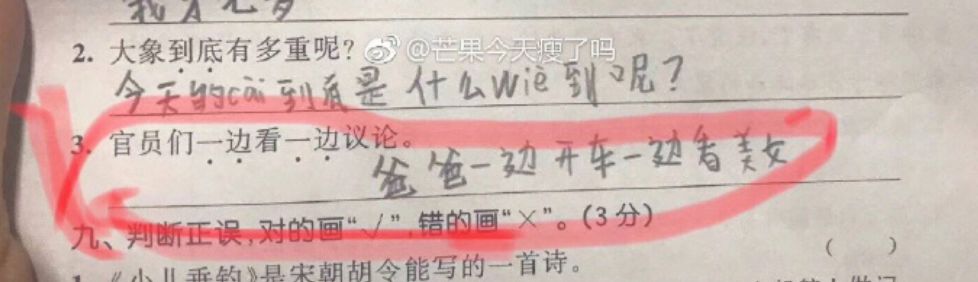 2. 大象到底有多重呢？
@芒果今天瘦了吗
今天的cài到底是什么wiè到呢？
3. 官员们一边看一边议论。
爸爸一边开车一边看美女
九、判断正误，对的画“√”，错的画“×”。(3分)
( )
1.《小儿垂钓》是宋朝胡令能写的一首诗。